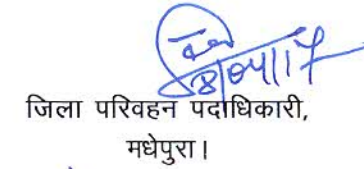 जिला परिवहन पदाधिकारी,
मधेपुरा।